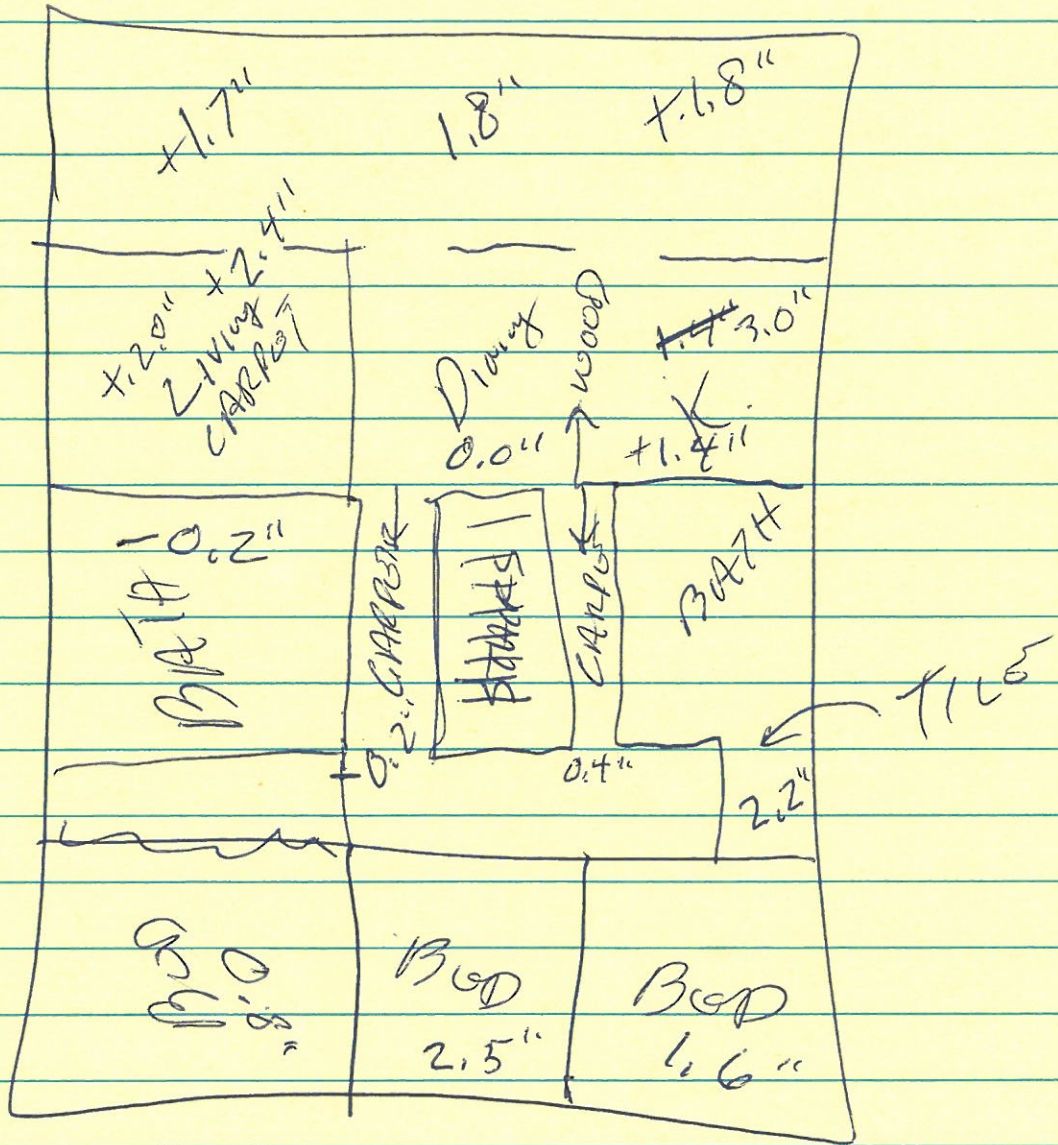 +1.7"
1.8"
+1.8"
+2.0"
+2.4"
Living
CARPET
Dining
0.0"
WOOD
1.4" 3.0"
K
+1.4"
BATH
-0.2"
CARPET
0.2"
CARPET
0.4"
BATH
TILE
2.2"
BED
2.5"
BED
1.6"